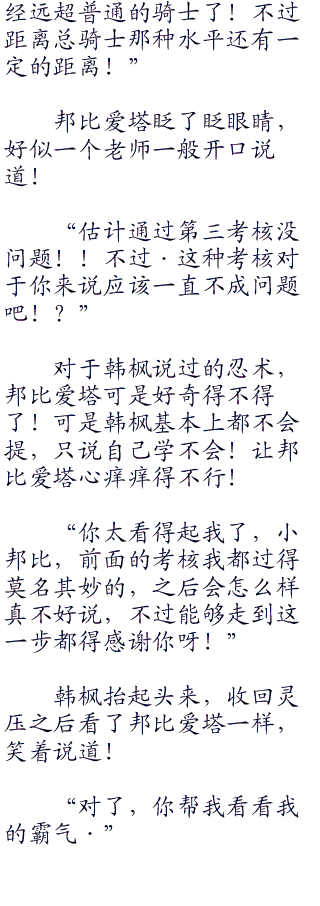 经远超普通的骑士了！不过
距离总骑士那种水平还有一
定的距离！”
邦比爱塔眨了眨眼睛，
好似一个老师一般开口说
道！
“估计通过第三考核没
问题！！不过·这种考核对
于你来说应该一直不成问题
吧！？”
对于韩枫说过的忍术，
邦比爱塔可是好奇得不得
了！可是韩枫基本上都不会
提，只说自己学不会！让邦
比爱塔心痒痒得不行！
“你太看得起我了，小
邦比，前面的考核我都过得
莫名其妙的，之后会怎么样
真不好说，不过能够走到这
一步都得感谢你呀！”
韩枫抬起头来，收回灵
压之后看了邦比爱塔一样，
笑着说道！
“对了，你帮我看看我
的霸气·”